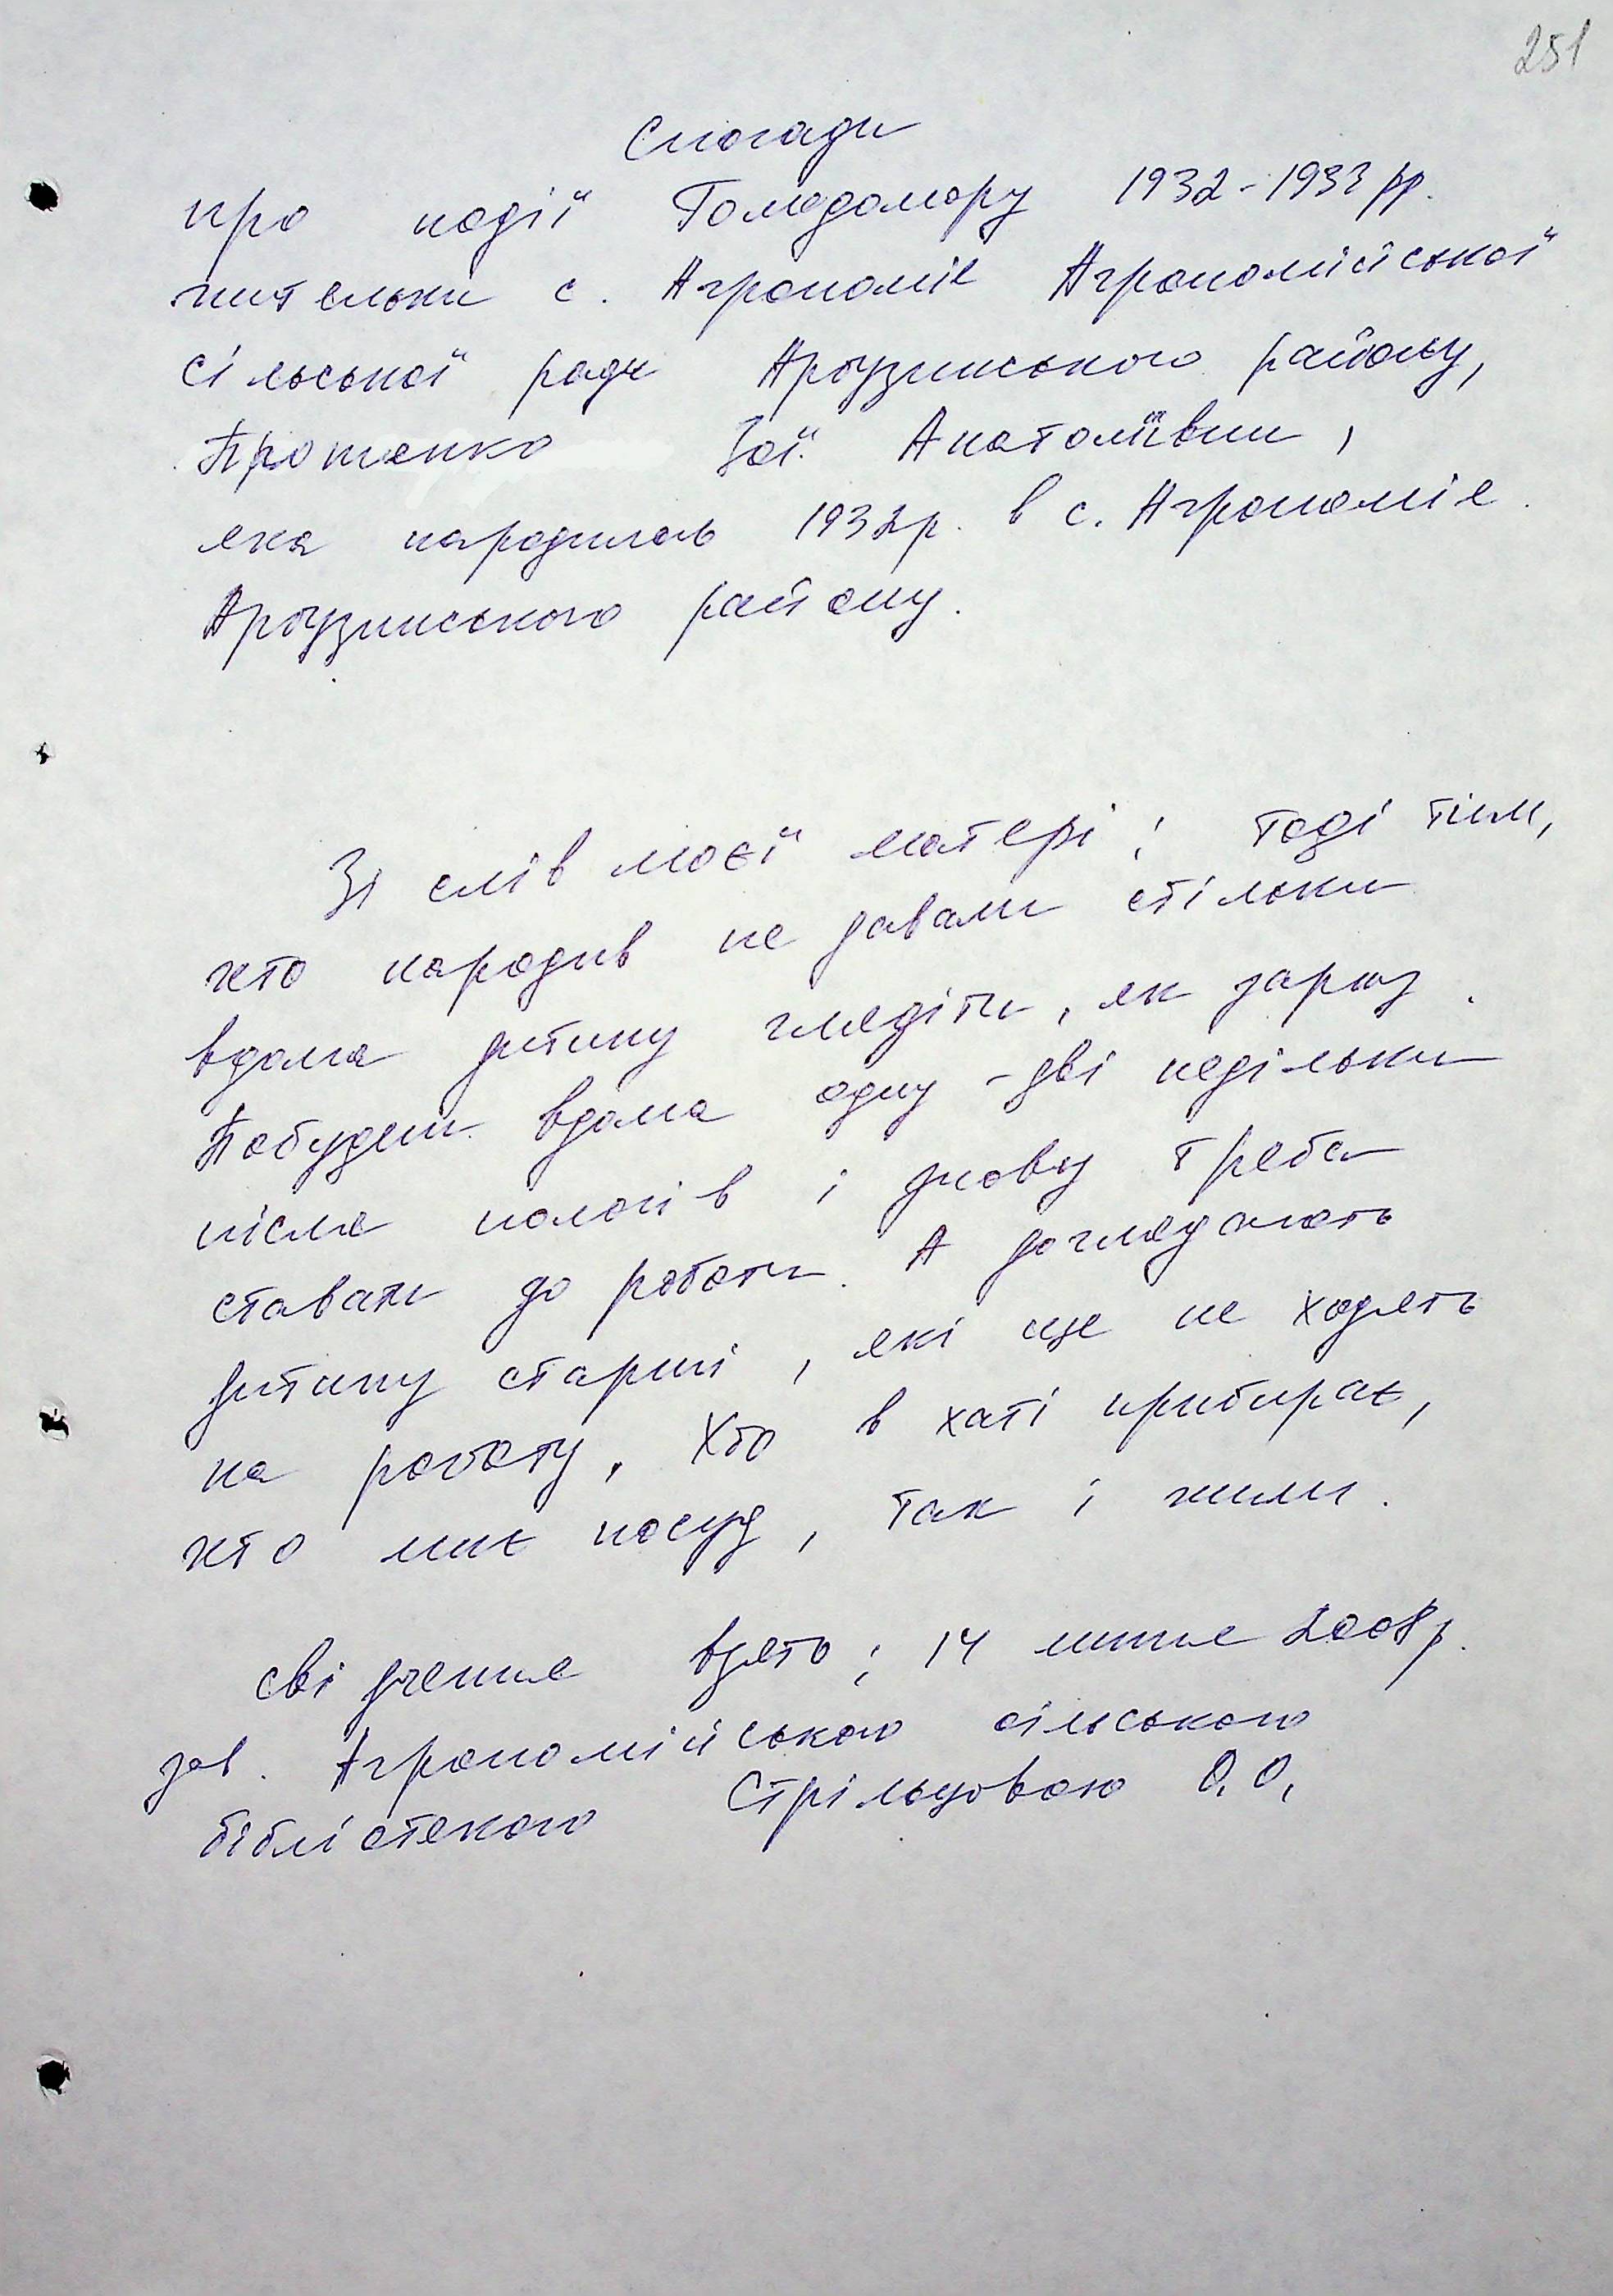 251
Спогади
про події Голодомору 1932-1933 рр.
жительки с. Агрономія Агрономійської
сільської ради Арбузинського району,
Зої Анатоліївни,
яка народилась 1932р. в с. Агрономія
Арбузинського району.
Зі слів моєї матері: тоді тим,
хто народив не давали стільки
вдома дитину глядіти, як зараз.
Побудеш вдома одну-дві недільки
після пологів і знову треба
ставати до роботи. А доглядають
дитину старші, які ще не ходять
на роботу. Хто в хаті прибирає,
хто миє посуд, так і жили.
свідчення взято: 14 липня 2008р.
зав. Агрономійською сільською
бібліотекою Стрільцовою О.О.